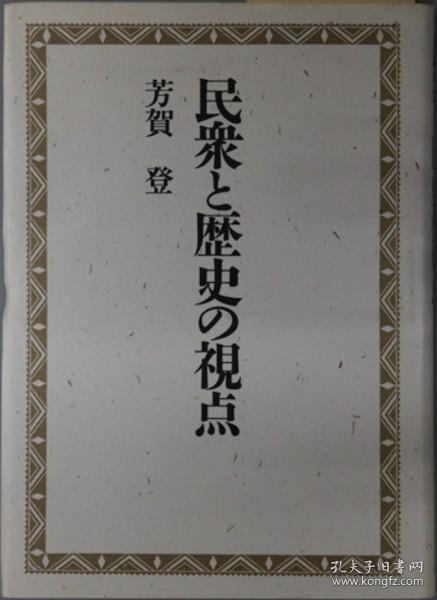 民衆と歴史の視点
芳賀 登
孔夫子旧书网
www.kongfz.com